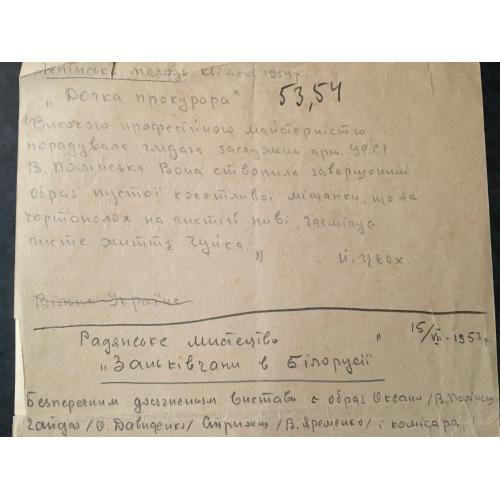 Ленінська молодь. квітень 1954 р.
„Дочка прокурора" 53,54
"Високою професійною майстерністю
порадувала глядача заслужена арт. УРСР
В. Полінська Вона створила завершений
образ пустої кокетливої міщанки, що як
чортополох на чистій ниві, засмічує
чисте життя Чуйка."
Й. Цьох.
Вільна Україна
Радянське мистецтво " 15/VII-1953 р.
„Заньківчани в Білорусії
Безперечним досягненням вистави є образ Оксани /В. Полінська
Гайдай /О. Давиденко/ Стрижня /В. Яременко/ і комісара